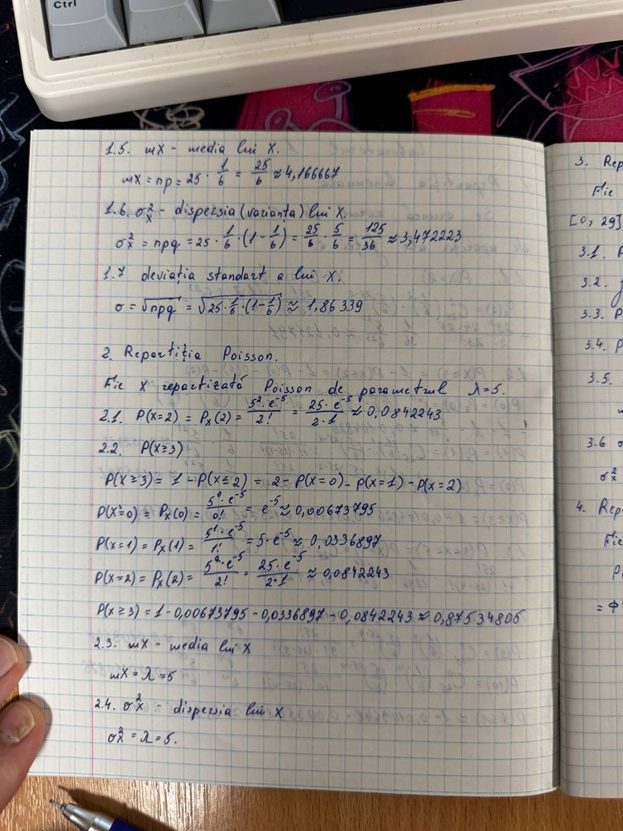 Ctrl
1.5. mX - media lui X.
mX = np = 25 · 1/6 = 25/6 ≈ 4,166667
1.6. σ²x - dispersia (varianta) lui X.
σ²x = npq = 25 · 1/6 · (1 - 1/6) = 25/6 · 5/6 = 125/36 ≈ 3,472223
1.7 deviația standart a lui X.
σ = √npq = √25 · 1/6 · (1 - 1/6) ≈ 1,86339
2. Repartiția Poisson.
Fie X repartizată Poisson de parametrul λ=5.
2.1. P(X=2) = Px(2) = 5² · e⁻⁵/2! = 25 · e⁻⁵/2·1 ≈ 0,0842243
2.2. P(X≥3)
P(X≥3) = 1 - P(X≤2) = 2 - P(X=0) - P(X=1) - P(X=2)
P(X=0) = Px(0) = 5⁰ · e⁻⁵/0! = e⁻⁵ ≈ 0,00673795
P(X=1) = Px(1) = 5¹ · e⁻⁵/1! = 5 · e⁻⁵ ≈ 0,0336897
P(X=2) = Px(2) = 5² · e⁻⁵/2! = 25 · e⁻⁵/2·1 ≈ 0,0842243
P(X≥3) = 1 - 0,00673795 - 0,0336897 - 0,0842243 ≈ 0,87534805
2.3. mX - media lui X
mX = λ = 5
2.4. σ²x - dispersia lui X
σ²x = λ = 5.
3. Rep
Fie
[0, 29]
3.1.
3.2.
3.3. P
3.4. P
3.5.
3.6 σ
σ²x
4. Rep
Fie
P(
= Φ